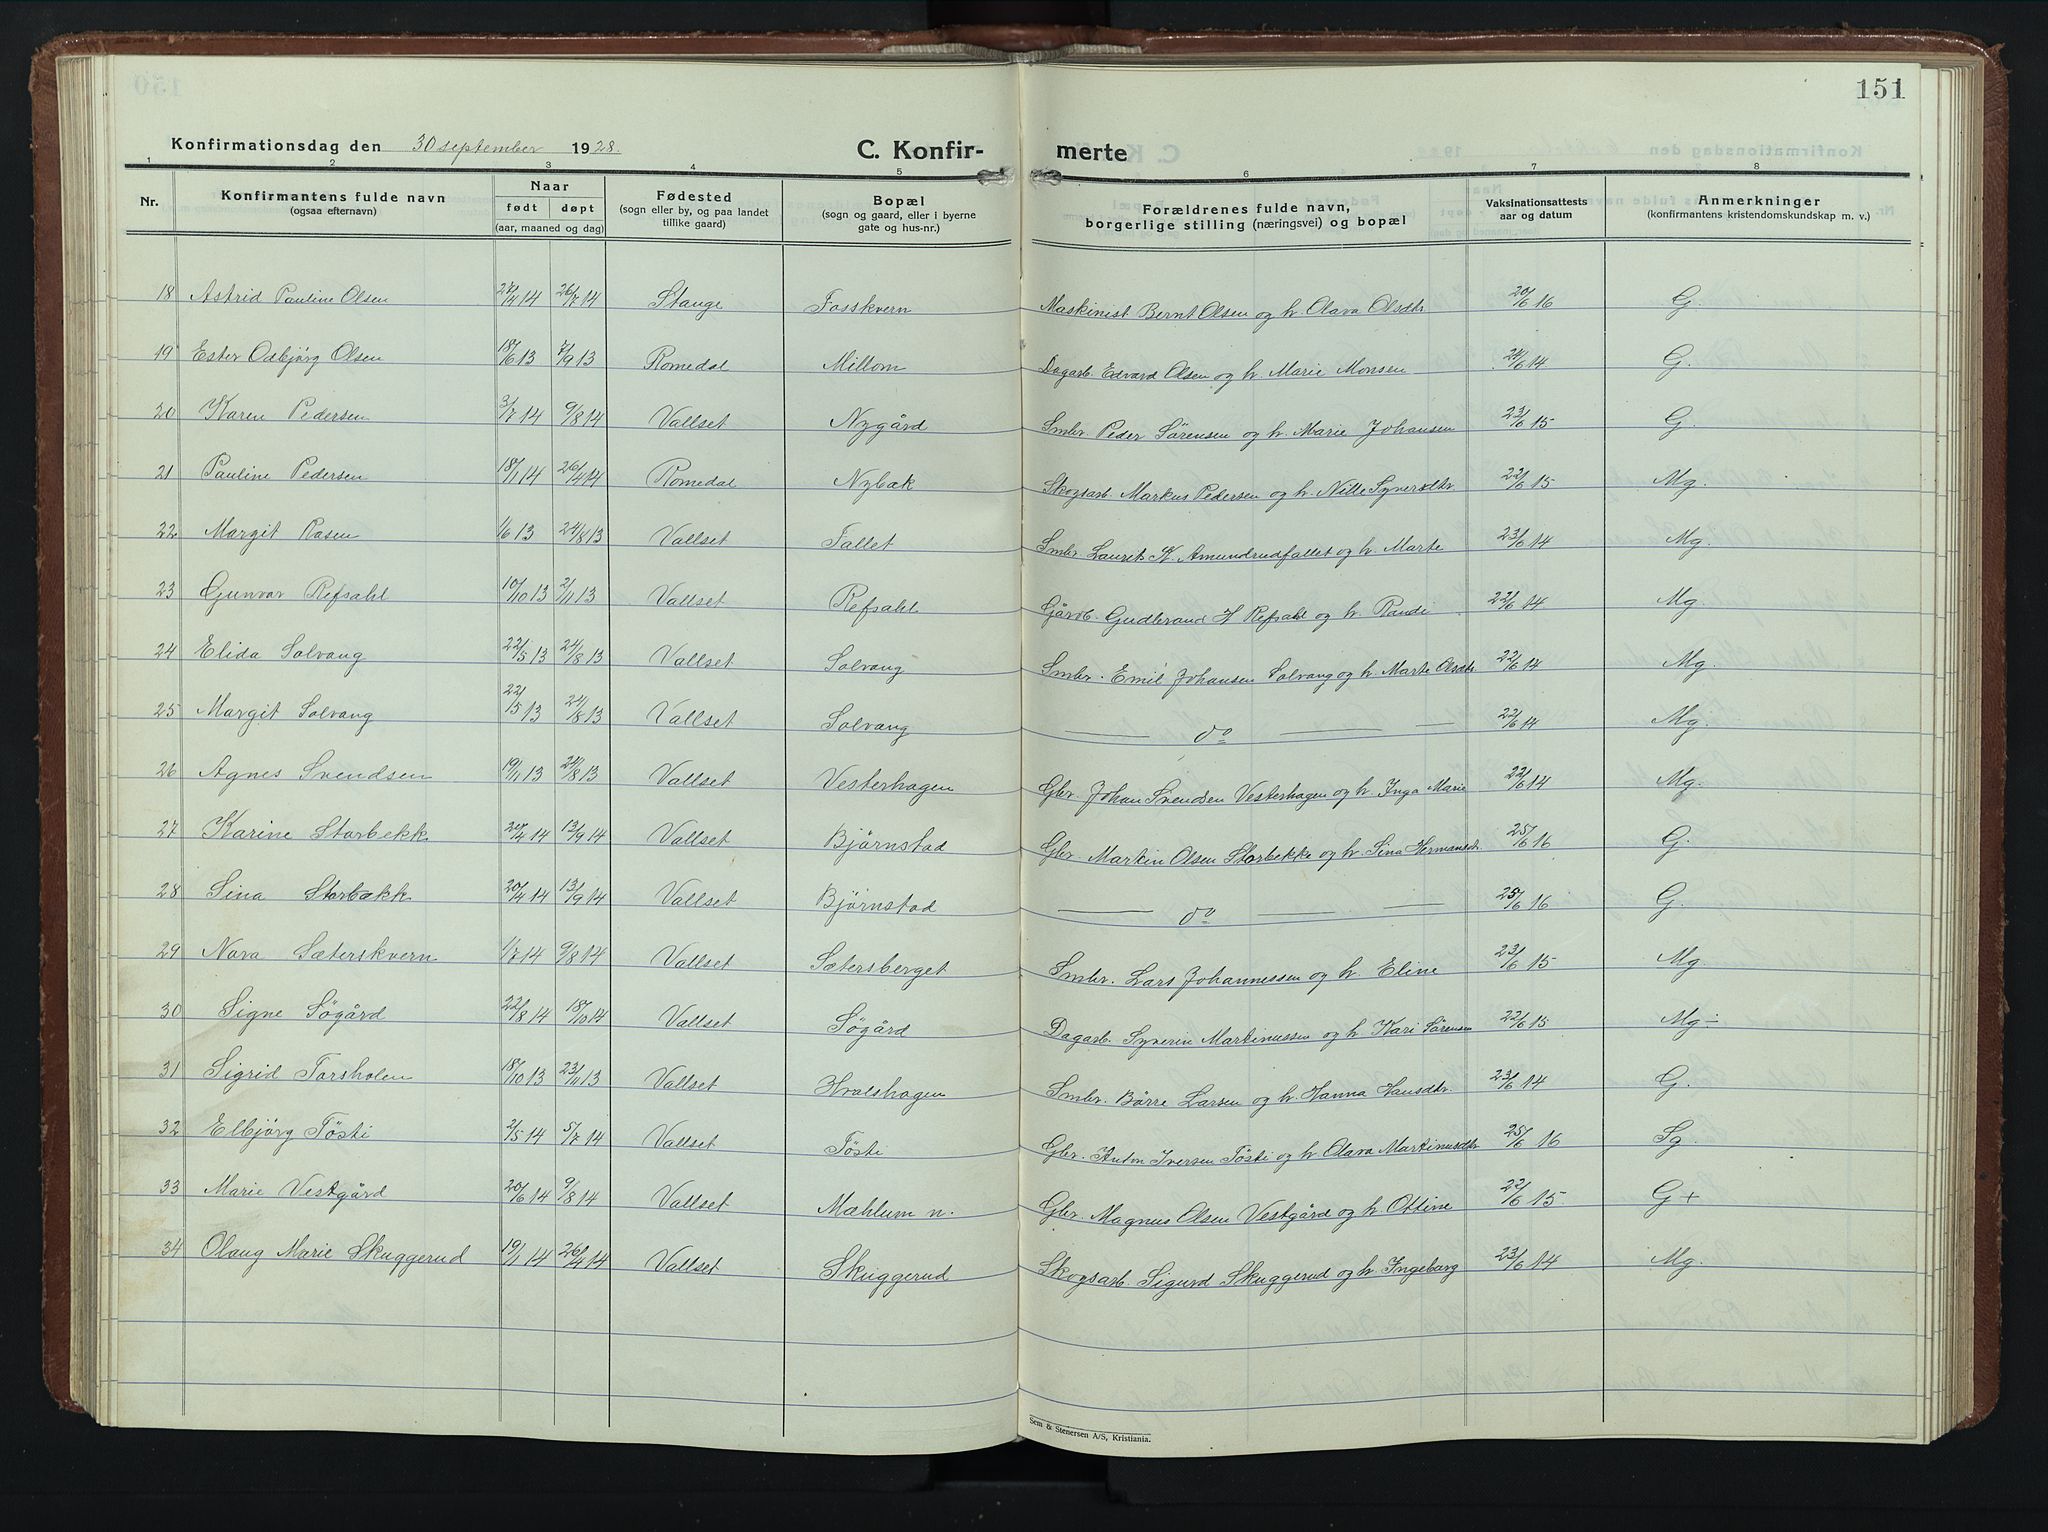 151
Konfirmationsdag den 30 september 1928.
C. Konfir- merte
1 2 3 4 5 6 7 8
Nr. Konfirmantens fulde navn (ogsaa efternavn) Naar født døpt (aar, maaned og dag) Fødested (sogn eller by, og paa landet tillike gaard) Bopæl (sogn og gaard, eller i byerne gate og hus-nr.) Forældrenes fulde navn, borgerlige stilling (næringsvei) og bopæl Vaksinationsattests aar og datum Anmerkninger (konfirmantens kristendomskundskap m. v.)
18 Astrid Pauline Olsen 27/4 14 26/7 14 Stange Fosskvern Maskinist Bernt Olsen og h. Olava Olsdtr 20/6 16 G.
19 Ester Osbjørg Olsen 18/6 13 7/9 13 Romedal Millom Dagarb. Edvard Olsen og h. Marie Monsen 24/6 14 G.
20 Karen Pedersen 3/7 14 9/8 14 Vallset Nygård Smbr. Peder Sørensen og h. Marie Johansen 23/6 15 G.
21 Pauline Pedersen 18/1 14 26/4 14 Romedal Nybak Skogsarb. Markus Pedersen og h. Nille Syversdtr 22/6 15 Mg.
22 Margit Rasen 1/6 13 24/8 13 Vallset Fallet Smbr. Laurits K. Amundrudfallet og h. Marte 23/6 14 Mg.
23 Gunvor Refsahl 10/10 13 2/11 13 Vallset Refsahl Gårdb. Gudbrand H Refsahl og h. Randi 22/6 14 Mg.
24 Elida Solvang 22/5 13 24/8 13 Vallset Solvang Smbr. Emil Johansen Solvang og h. Marte Olsdtr. 22/6 14 Mg.
25 Margit Solvang 22/5 13 24/8 13 Vallset Solvang — do — — 22/6 14 Mg.
26 Agnes Svendsen 19/1 13 24/8 13 Vallset Vesterhagen Gbr. Johan Svendsen Vesterhagen og h. Inga Marie 22/6 14 Mg.
27 Karine Storbekk 20/4 14 13/9 14 Vallset Bjørnstad Gbr. Martin Olsen Storbekke og h. Sina Hermansdtr. 25/6 16 G.
28 Sina Storbækk 20/4 14 13/9 14 Vallset Bjørnstad — do — — 25/6 16 G.
29 Nora Sæterskvern 1/7 14 9/8 14 Vallset Sætersberget Smbr. Lars Johannessen og h. Eline 23/6 15 Mg.
30 Signe Søgård 22/8 14 18/10 14 Vallset Søgård Dagarb. Syverin Martinussen og h. Kari Sørensen 22/6 15 Mg ÷
31 Sigrid Torsholen 18/10 13 23/11 13 Vallset Hvalshagen Smbr. Børre Larsen og h. Hanna Hansdtr. 23/6 14 G.
32 Elbjørg Tøsti 2/5 14 5/7 14 Vallset Tøsti Gbr. Anton Iversen Tøsti og h Olava Martinusdtr 25/6 16 Sg.
33 Marie Vestgård 20/6 14 9/8 14 Vallset Mæhlum n. Gbr. Magnus Olsen Vestgård og h. Ottine 22/6 15 G +
34 Olaug Marie Skuggerud 19/1 14 26/4 14 Vallset Skuggerud Skogsarb. Sigurd Skuggerud og h. Ingeborg 23/6 14 Mg.
Sem & Stenersen A/S, Kristiania.